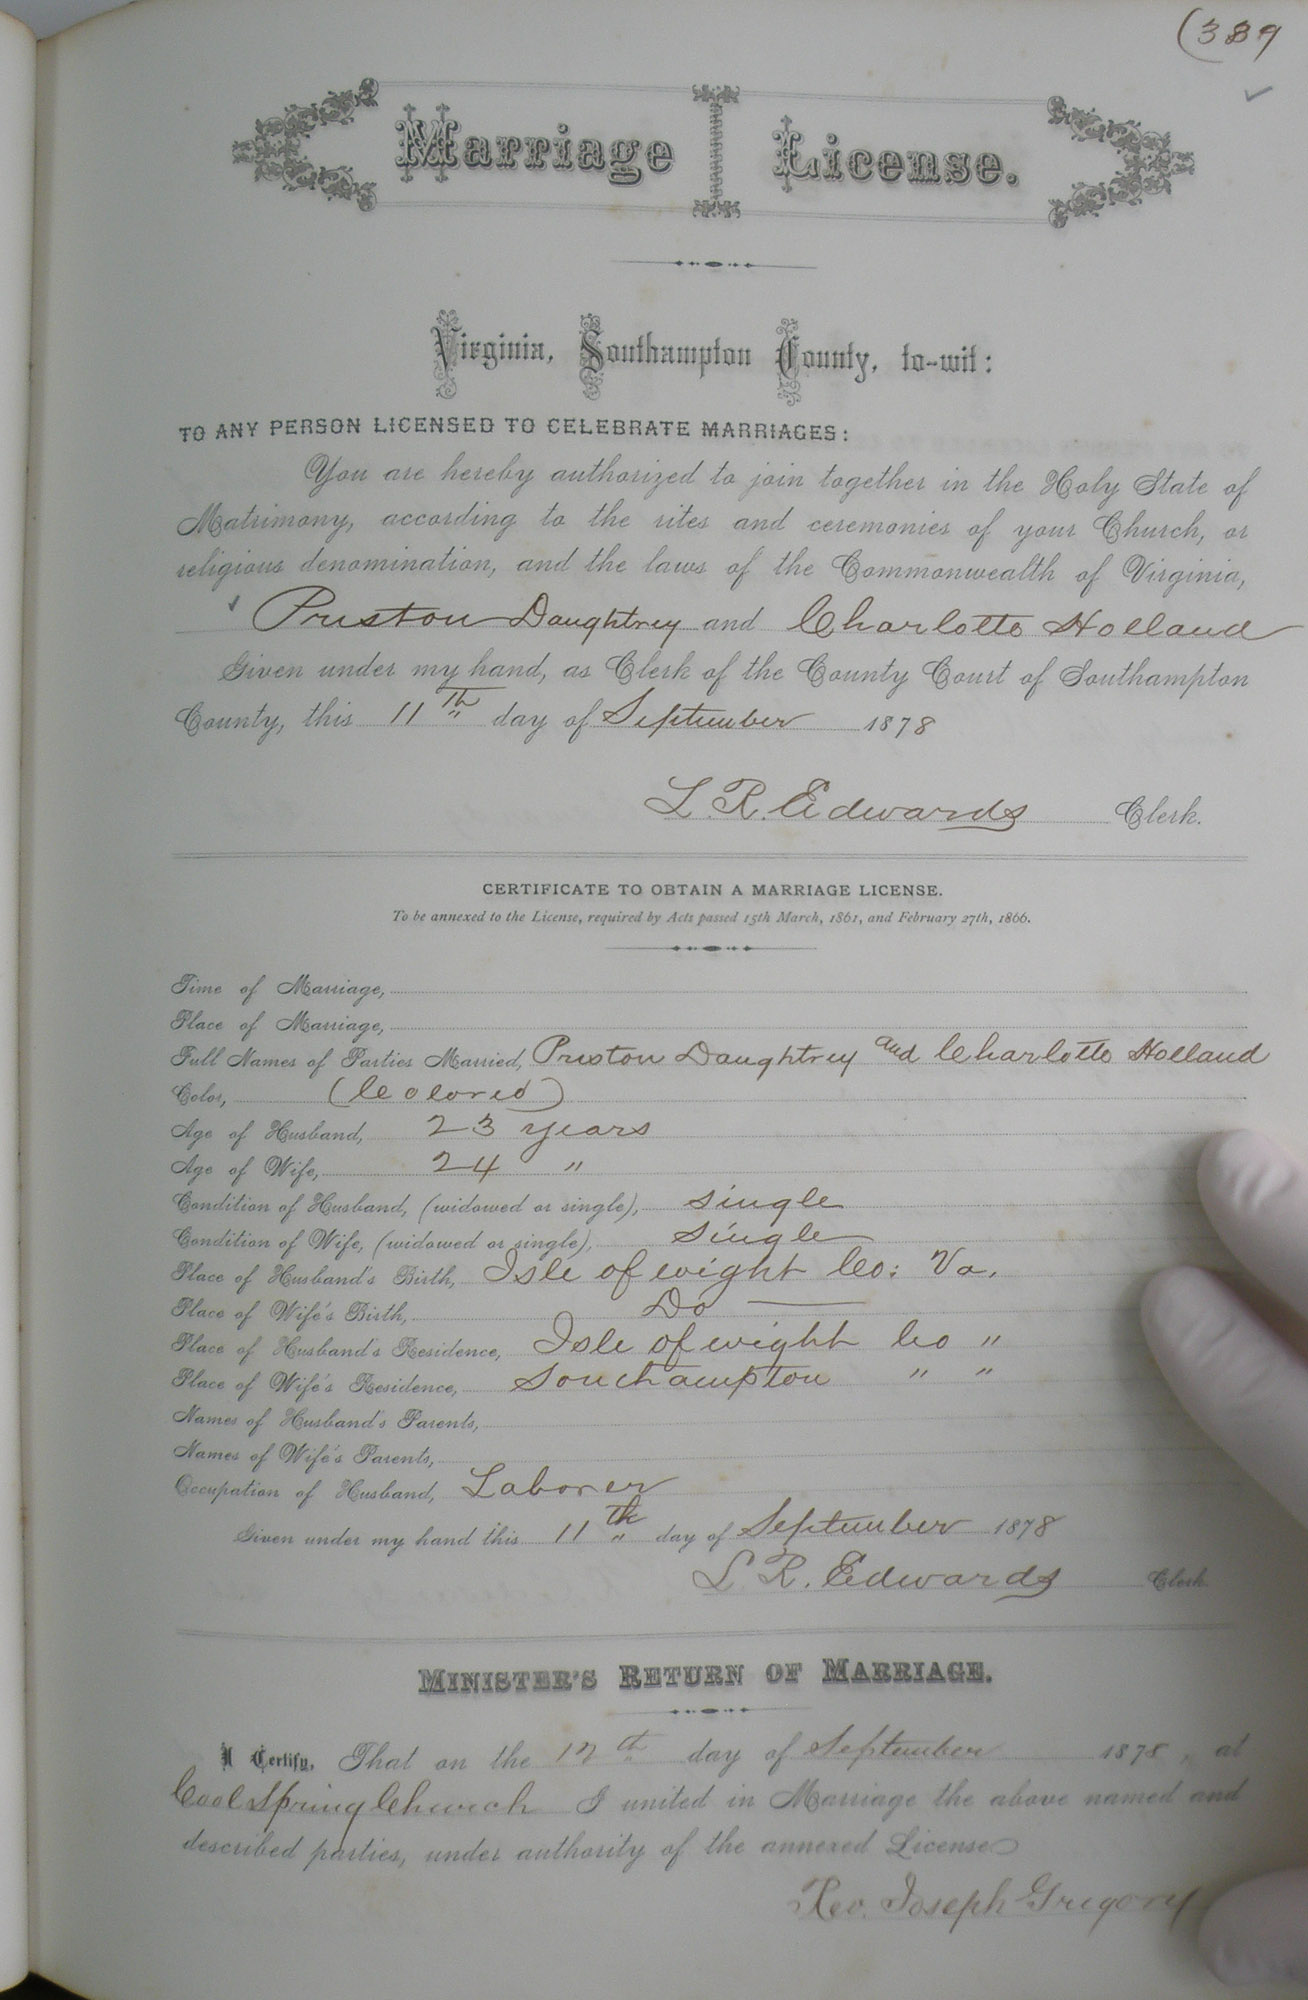 (389
Marriage License.
Virginia, Southampton County, to-wit:
TO ANY PERSON LICENSED TO CELEBRATE MARRIAGES:
You are hereby authorized to join together in the Holy State of
Matrimony, according to the rites and ceremonies of your Church, or
religious denomination, and the laws of the Commonwealth of Virginia,
Preston Daughtrey and Charlotte Holland
Given under my hand, as Clerk of the County Court of Southampton
County, this 11th day of September 1878
L. R. Edwards Clerk.
CERTIFICATE TO OBTAIN A MARRIAGE LICENSE.
To be annexed to the License, required by Acts passed 15th March, 1861, and February 27th, 1866.
Time of Marriage,
Place of Marriage,
Full Names of Parties Married, Preston Daughtrey and Charlotte Holland
Color, (Colored)
Age of Husband, 23 years
Age of Wife, 24 "
Condition of Husband, (widowed or single), single
Condition of Wife, (widowed or single), single
Place of Husband's Birth, Isle of wight Co: Va.
Place of Wife's Birth, Do
Place of Husband's Residence, Isle of wight Co "
Place of Wife's Residence, Southampton " "
Names of Husband's Parents,
Names of Wife's Parents,
Occupation of Husband, Laborer
Given under my hand this 11th day of September 1878
L R. Edwards Clerk
MINISTER'S RETURN OF MARRIAGE.
I Certify, That on the 12th day of September 1878, at
Cool Spring Church I united in Marriage the above named and
described parties, under authority of the annexed License
Rev. Joseph Gregory